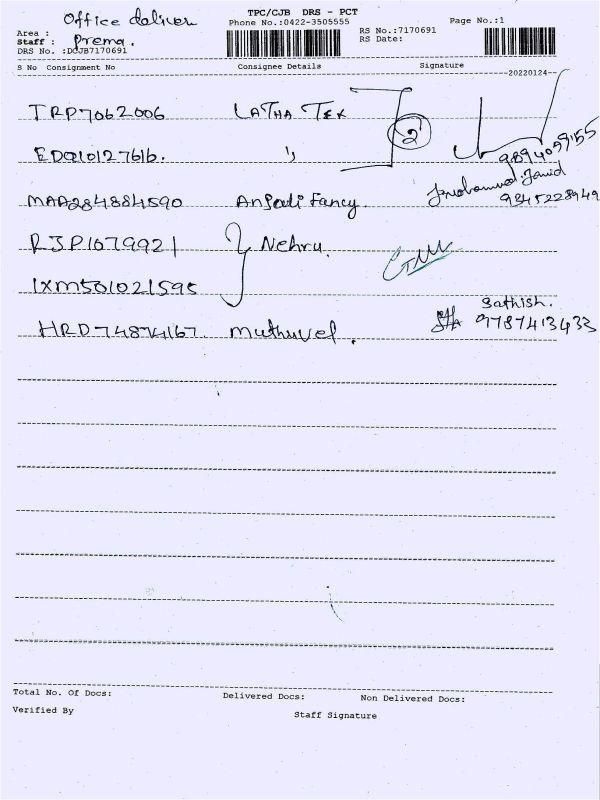 Office deliver
TPC/CJB DRS - PCT
Phone No.:0422-3505555
Page No.:1
Area :
Staff : Prema.
DRS No. :DCJB7170691
RS No.:7170691
RS Date:
S No Consignment No Consignee Details Signature
20220124
TRP7062006 LATHA TEX 2
EDQ10127616. ''
9894059155
MAA284884590 Anjali Fancy.
9345228949
RJP1679921 Nehru.
IXM501021595
HRD74874167. Muthuvel. Sathish.
9787413433
Total No. Of Docs: Delivered Docs: Non Delivered Docs:
Verified By Staff Signature